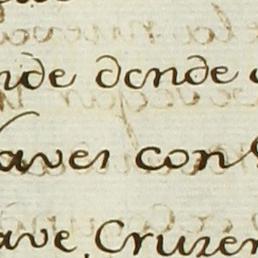 nde donde
aves con
ave, Cruzer